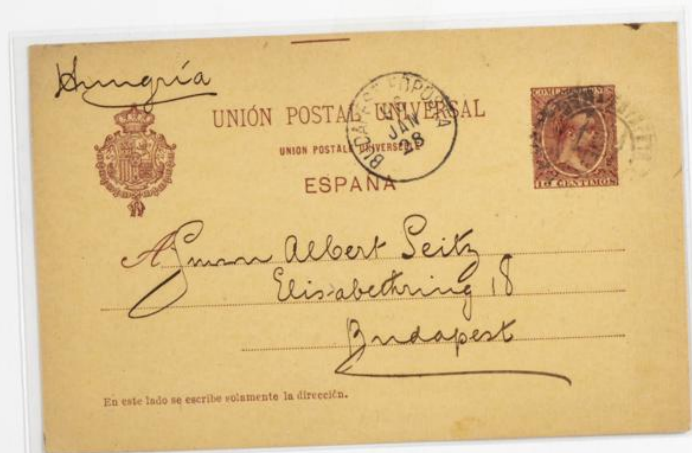 Hungría
UNIÓN POSTAL UNIVERSAL
UNION POSTALE UNIVERSELLE
ESPAÑA
BUDAPEST FŐPOSTA
JAN
28
COMUNICACIONES
10 CENTIMOS
A Herrn Albert Seitz
Elisabethring 18
Budapest
En este lado se escribe solamente la dirección.